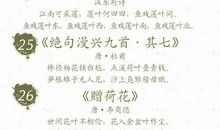 汉乐府诗
江南可采莲，莲叶何田田，鱼戏莲叶间。
鱼戏莲叶东，鱼戏莲叶西，鱼戏莲叶南，鱼戏莲叶北。
25 《绝句漫兴九首·其七》
唐·杜甫
糁径杨花铺白毡，点溪荷叶叠青钱。
笋根雉子无人见，沙上凫雏傍母眠。
26 《赠荷花》
唐·李商隐
世间花叶不相伦，花入金盆叶作尘。